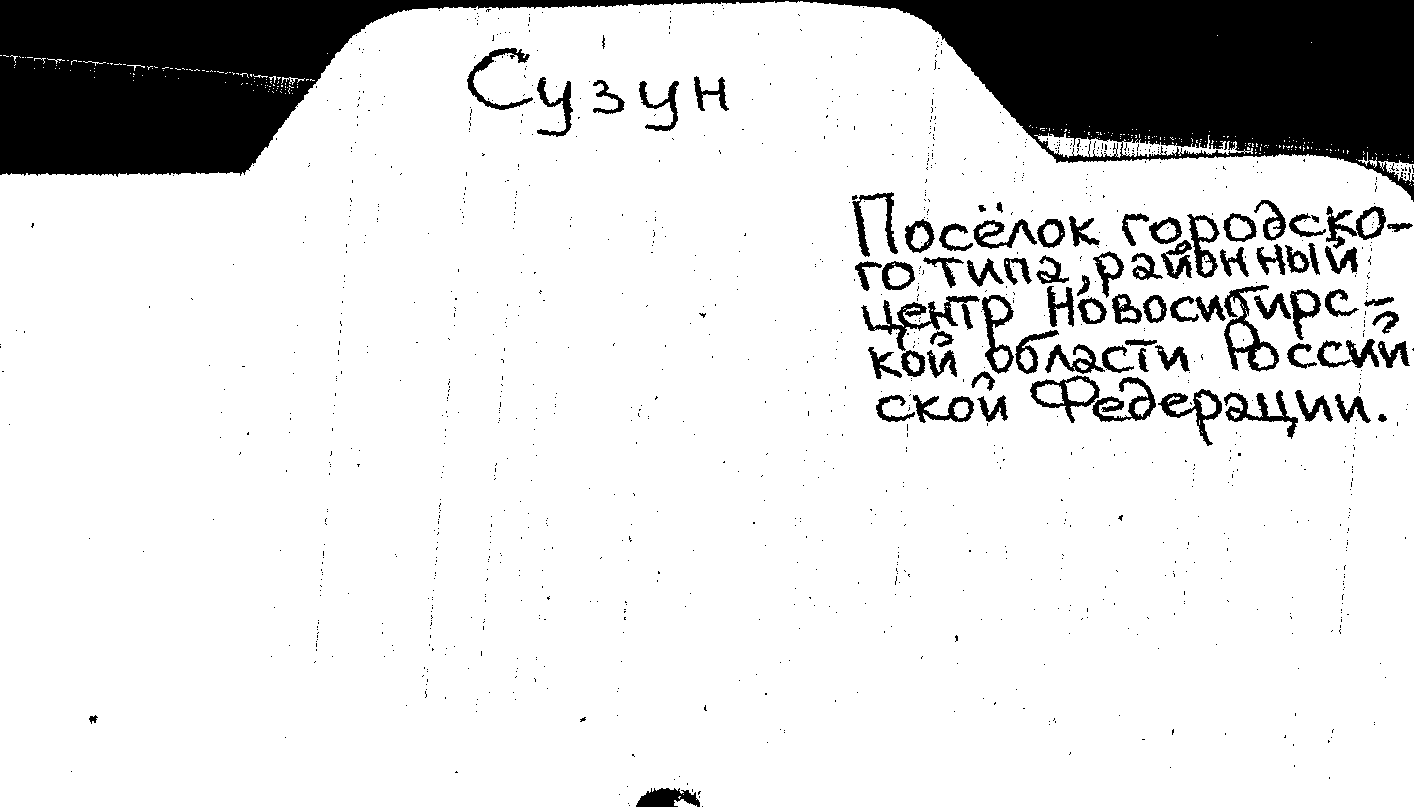 Сузун
Посёлок городско-
го типа, районный
центр Новосибирс-
кой области Россий
ской Федерации.